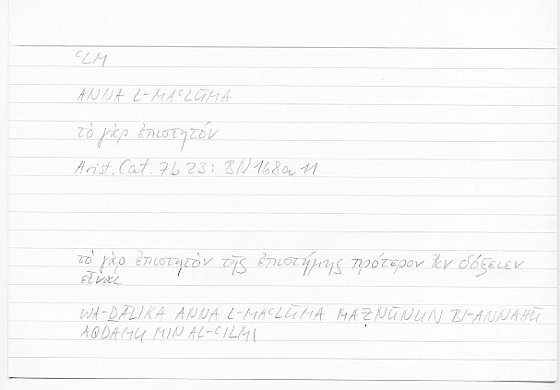 ᶜLM
ANNA L-MAᶜLŪMA
τὸ γὰρ ἐπιστητόν
Arist. Cat. 7b 23; BN 168a 11
τὸ γὰρ ἐπιστητὸν τῆς ἐπιστήμης πρότερον ἂν δόξειεν
εἶναι
WA-ḎĀLIKA ANNA L-MAᶜLŪMA MAẒNŪNUN BI-ANNAHŪ
AQDAMU MIN AL-ᶜILMI